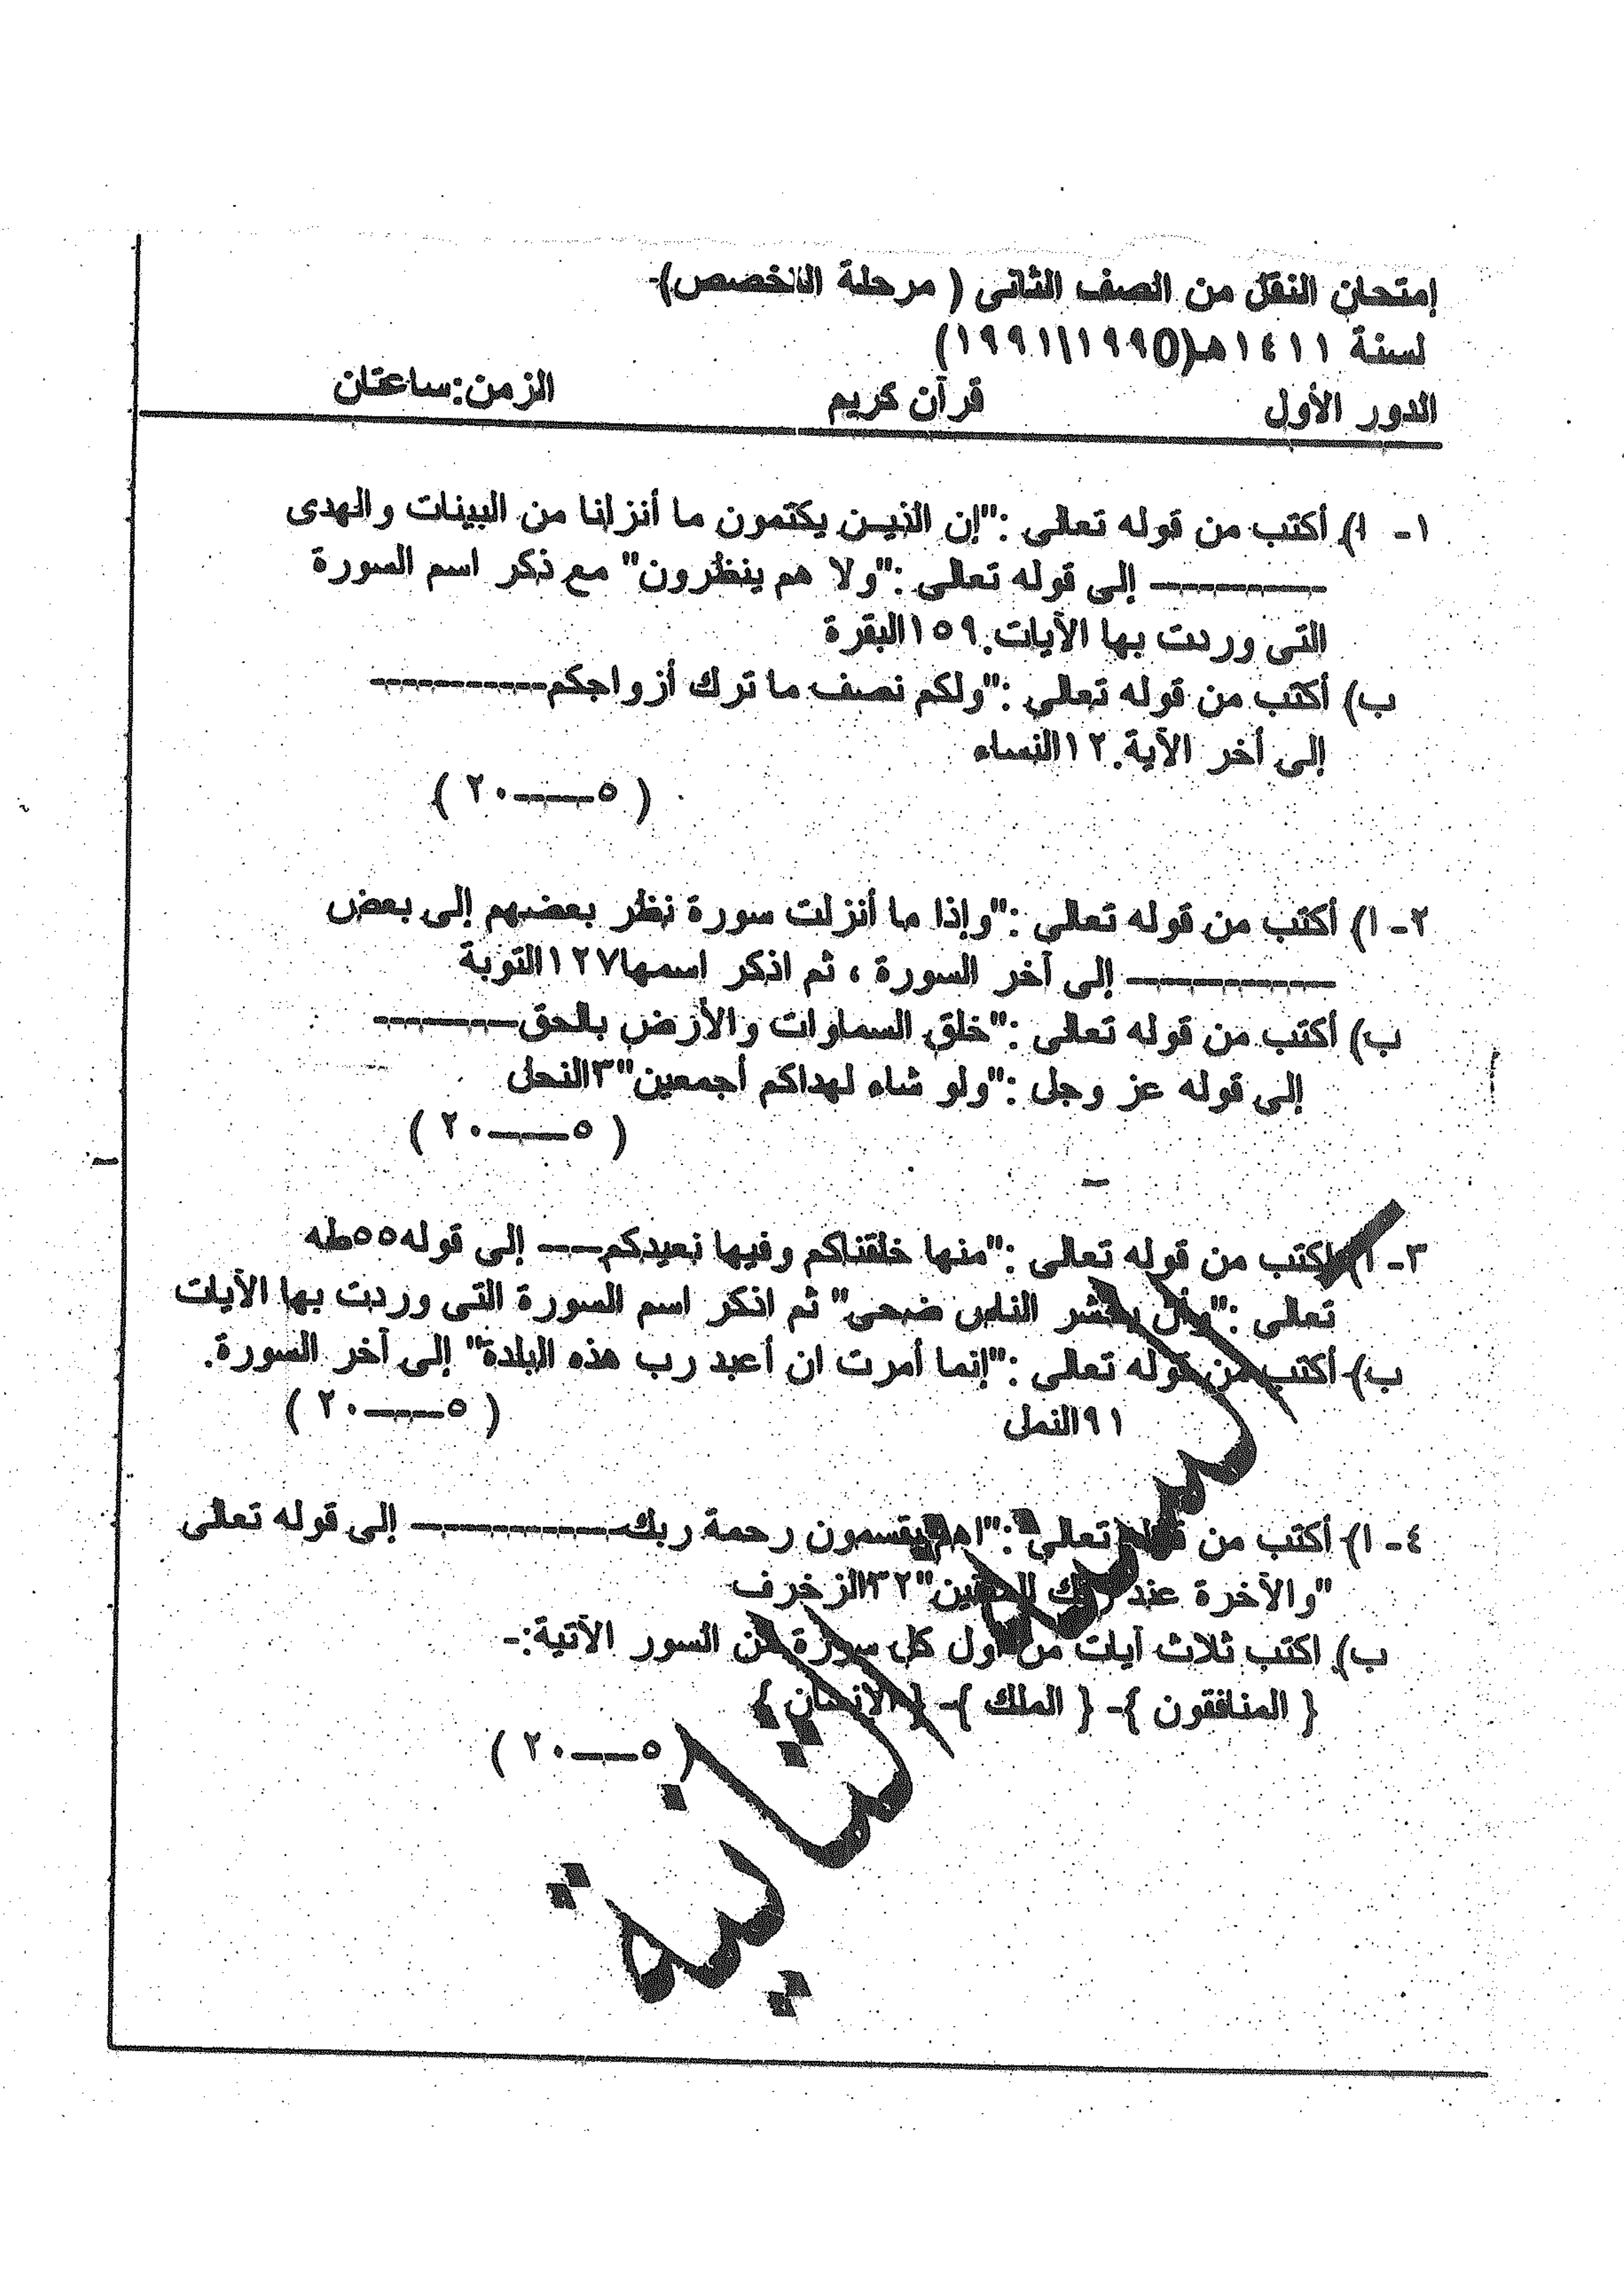 إمتحان النقل من الصف الثانى ( مرحلة التخصص)-
لسنة ١٤١١هـ(١٩٩١/١٩٩٠)
الدور الأول قرآن كريم الزمن:ساعتان
١- ا) أكتب من قوله تعالى :"إن الذين يكتمون ما أنزلنا من البينات والهدى
---------- إلى قوله تعالى :"ولا هم ينظرون" مع ذكر اسم السورة
التى وردت بها الآيات.١٥٩البقرة
ب) أكتب من قوله تعالى :"ولكم نصف ما ترك أزواجكم----------
إلى أخر الآية.١٢النساء
( ٥-----٢٠ )
٢- ا) أكتب من قوله تعالى :"وإذا ما أنزلت سورة نظر بعضهم إلى بعض
------------ إلى آخر السورة ، ثم اذكر اسمها١٢٧التوبة
ب) أكتب من قوله تعالى :"خلق السماوات والأرض بالحق--------
إلى قوله عز وجل :"ولو شاء لهداكم أجمعين"٣النحل
( ٥-----٢٠ )
٣- ا) اكتب من قوله تعالى :"منها خلقناكم وفيها نعيدكم---- إلى قوله٥٥طه
تعالى :"وأن يحشر الناس ضحى" ثم اذكر اسم السورة التى وردت بها الآيات
ب)- أكتب من قوله تعالى :"إنما أمرت ان أعبد رب هذه البلدة" إلى آخر السورة.
٩١النمل ( ٥-----٢٠ )
٤- ا)- أكتب من قوله تعالى :"اهم يقسمون رحمة ربك------------ إلى قوله تعالى
"والآخرة عند ربك للمتقين"٣٢الزخرف
ب) اكتب ثلاث آيات من أول كل سورة من السور الآتية:-
{ المنافقون }- { الملك }- { الإنسان }
( ٥----٢٠ )
السنة الثانية